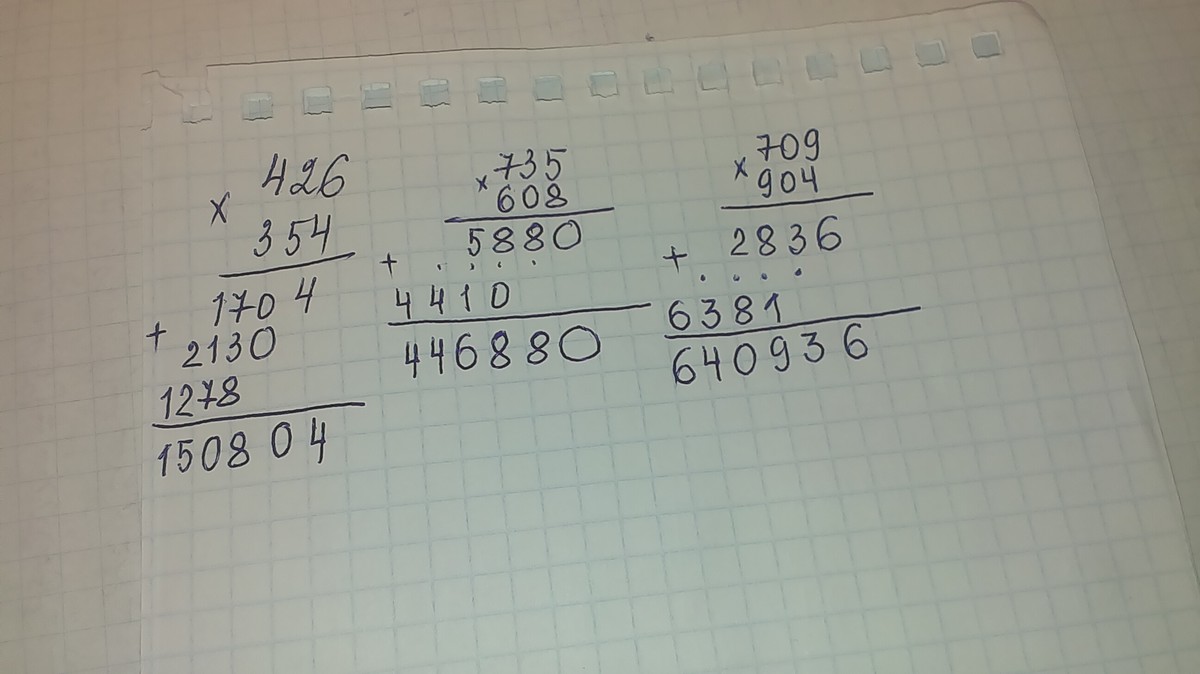 × 426
354
1704
+ 2130
1278
150804
× 735
608
5880
+ . . . .
4410
446880
× 709
904
2836
+ . . . .
6381
640936